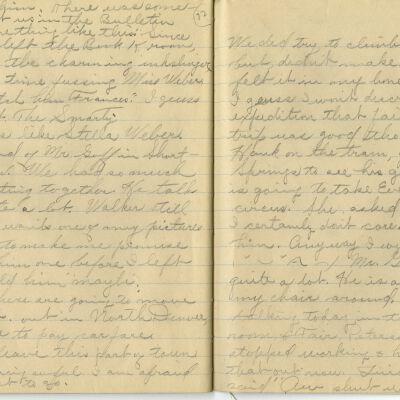 There was some
it us in the Bulletin
something like this: Since
left the Book K room,
the charming inkslinger
time fussing Miss Weber
"Frances." I guess
The Smarty.
like Stella Webers
of Mr. Goff in short
We had so much
together. He talks
a lot. Walker still
wants one of my pictures
to make me promise
him one before I left
him "maybe."
are going to move
out in North Denver,
to pay carfare
leave this part of town
awful. I am afraid
to go.
77
We did try to climb
but didn't make
felt it in my bones
I guess I won't
expedition that
trip was good tho
Hank on the train,
Springs to see his
is going to take
circus. She asked
I certainly don't care
him. Anyway I
Mr. G
quite a lot. He is a
my chair around.
talking today in the
room & Fair Peters
stopped working &
that out now.
said "Aw shut u